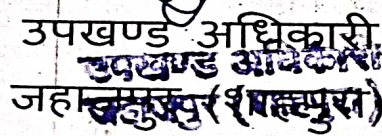 उपखण्ड अधिकारी
उपखण्ड अधिकारी
जहाजपुर (शाहपुरा)